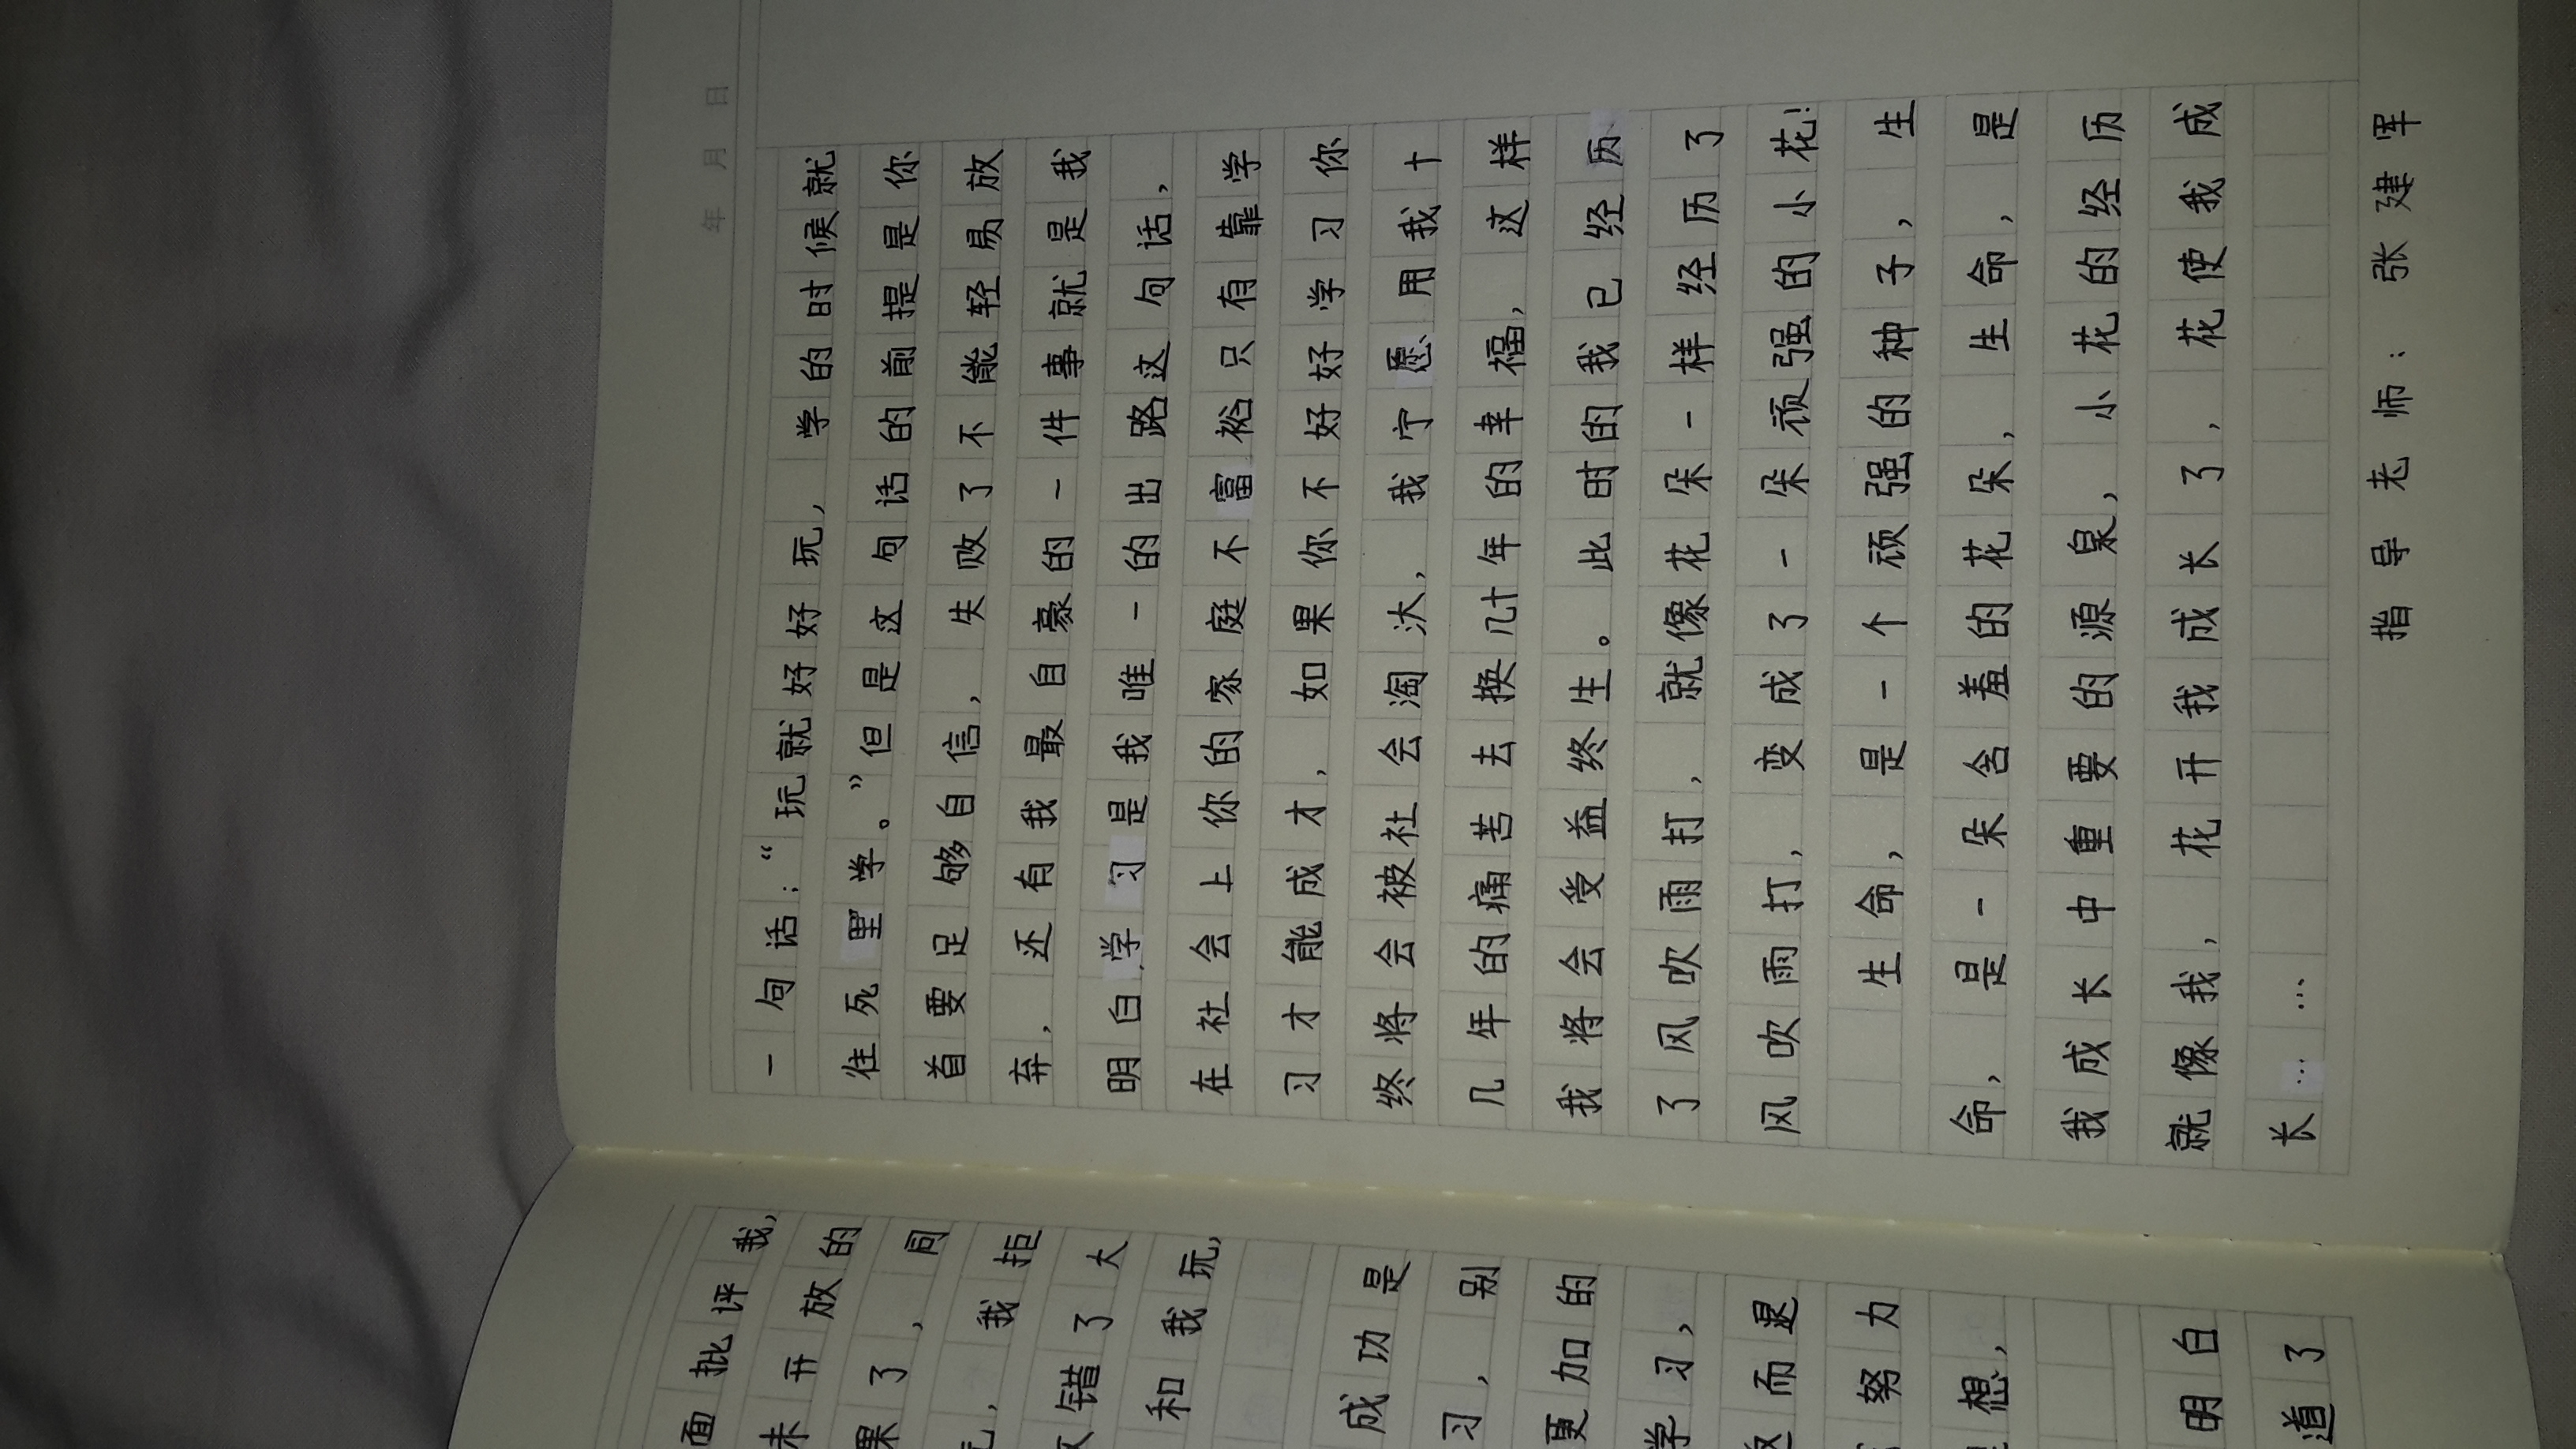 面批评我，
未开放的
果了，同
，我拒
错了大
和我玩，
成功是
习，别
更加的
学习，
而退
努力
想，
明白
道了
年 月 日
一句话：“玩就好好玩，学的时候就
往死里学。”但是这句话的前提是你
首要足够自信，失败了不能轻易放
弃，还有我最自豪的一件事就是我
明白学习是我唯一的出路这句话，
在社会上你的家庭不富裕只有靠学
习才能成才，如果你不好好学习你
终将会被社会淘汰，我宁愿用我十
几年的痛苦去换几十年的幸福，这样
我将会受益终生。此时的我已经历
了风吹雨打，就像花朵一样经历了
风吹雨打，变成了一朵顽强的小花！
生命，是一个顽强的种子，生
命，是一朵含羞的花朵，生命，是
我成长中重要的源泉，小花的经历
就像我，花开我成长了，花使我成
长……
指导老师：张建军